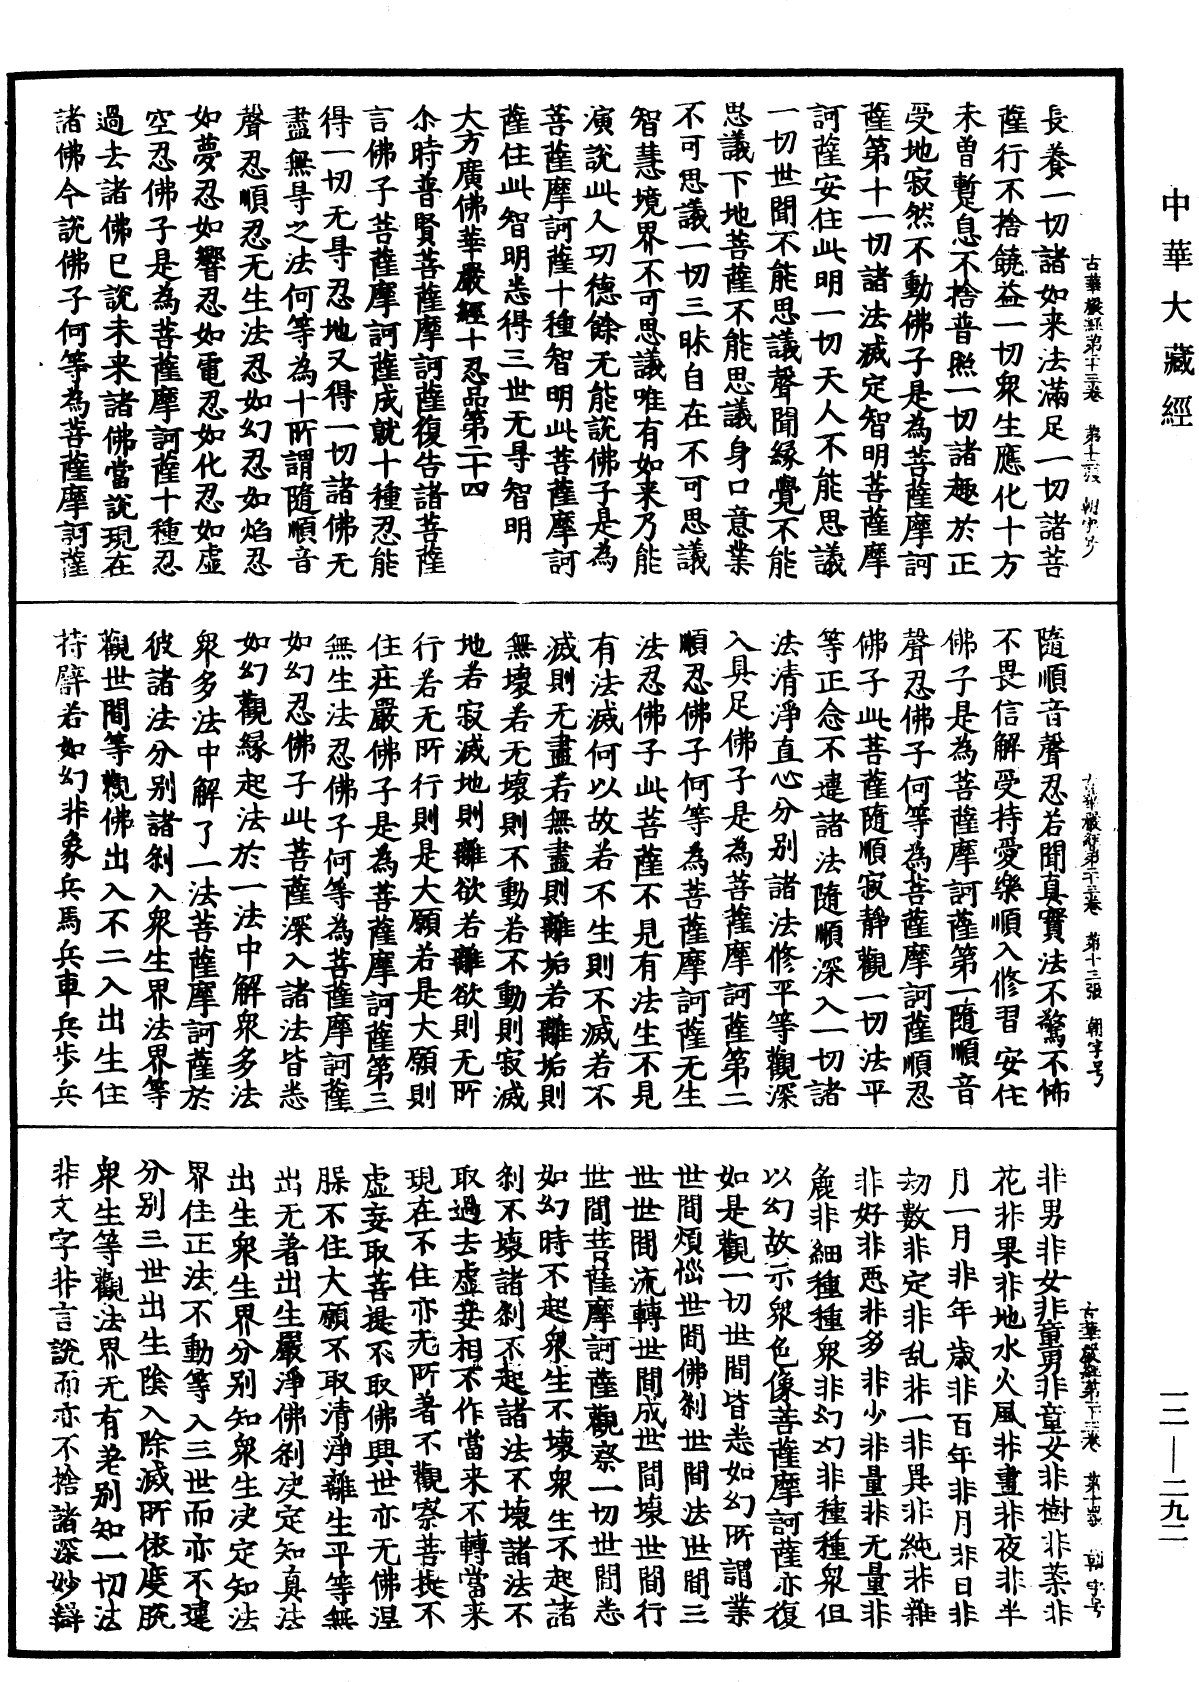 中華大藏經
一二—二九二
長養一切諸如来法滿足一切諸菩
薩行不捨饒益一切衆生應化十方
未曽蹔息不捨普照一切諸趣於正
受地寂然不動佛子是為菩薩摩訶
薩第十一切諸法滅定智明菩薩摩
訶薩安住此明一切天人不能思議
一切世間不能思議聲聞縁覺不能
思議下地菩薩不能思議身口意業
不可思議一切三昧自在不可思議
智慧境界不可思議唯有如来乃能
演說此人功德餘无能說佛子是為
菩薩摩訶薩十種智明此菩薩摩訶
薩住此智明悉得三世无㝵智明
大方廣佛華嚴經十忍品第二十四
尒時普賢菩薩摩訶薩復告諸菩薩
言佛子菩薩摩訶薩成就十種忍能
得一切无㝵忍地又得一切諸佛无
盡無㝵之法何等為十所謂隨順音
聲忍順忍无生法忍如幻忍如焰忍
如夢忍如響忍如電忍如化忍如虛
空忍佛子是為菩薩摩訶薩十種忍
過去諸佛已說未来諸佛當說現在
諸佛今說佛子何等為菩薩摩訶薩
古華嚴經第十三卷 第十二張 朝字号
隨順音聲忍若聞真實法不驚不怖
不畏信解受持愛樂順入修習安住
佛子是為菩薩摩訶薩第一隨順音
聲忍佛子何等為菩薩摩訶薩順忍
佛子此菩薩隨順寂靜觀一切法平
等正念不違諸法隨順深入一切諸
法清淨直心分別諸法修平等觀深
入具足佛子是為菩薩摩訶薩第二
順忍佛子何等為菩薩摩訶薩无生
法忍佛子此菩薩不見有法生不見
有法滅何以故若不生則不滅若不
滅則无盡若無盡則離垢若離垢則
無壞若无壞則不動若不動則寂滅
地若寂滅地則離欲若離欲則无所
行若无所行則是大願若是大願則
住莊嚴佛子是為菩薩摩訶薩第三
無生法忍佛子何等為菩薩摩訶薩
如幻忍佛子此菩薩深入諸法皆悉
如幻觀縁起法於一法中解衆多法
衆多法中解了一法菩薩摩訶薩於
彼諸法分別諸刹入衆生界法界等
觀世間等觀佛出入不二入出生住
持譬若如幻非象兵馬兵車兵步兵
古華嚴經第十三卷 第十三張 朝字号
非男非女非童男非童女非樹非葉非
花非果非地水火風非晝非夜非半
月一月非年歳非百年非月非日非
劫數非定非乱非一非異非純非雜
非好非惡非多非少非量非无量非
麁非細種種衆非幻幻非種種衆但
以幻故示衆色像菩薩摩訶薩亦復
如是觀一切世間皆悉如幻所謂業
世間煩惱世間佛刹世間法世間三
世世間流轉世間成世間壞世間行
世間菩薩摩訶薩觀察一切世間悉
如幻時不起衆生不壞衆生不起諸
刹不壞諸刹不起諸法不壞諸法不
取過去虛妄相不作當来不轉當来
現在不住亦无所著不觀察菩提不
虛妄取菩提不取佛興世亦无佛涅
脲不住大願不取清淨離生平等無
出无著出生嚴淨佛刹决定知真法
出生衆生界分別知衆生决定知法
界住正法不動等入三世而亦不違
分別三世出生陰入除滅所依度脫
衆生等觀法界无有差別知一切法
非文字非言說而亦不捨諸深妙辯
古華嚴經第十三卷 第十四張 朝字号